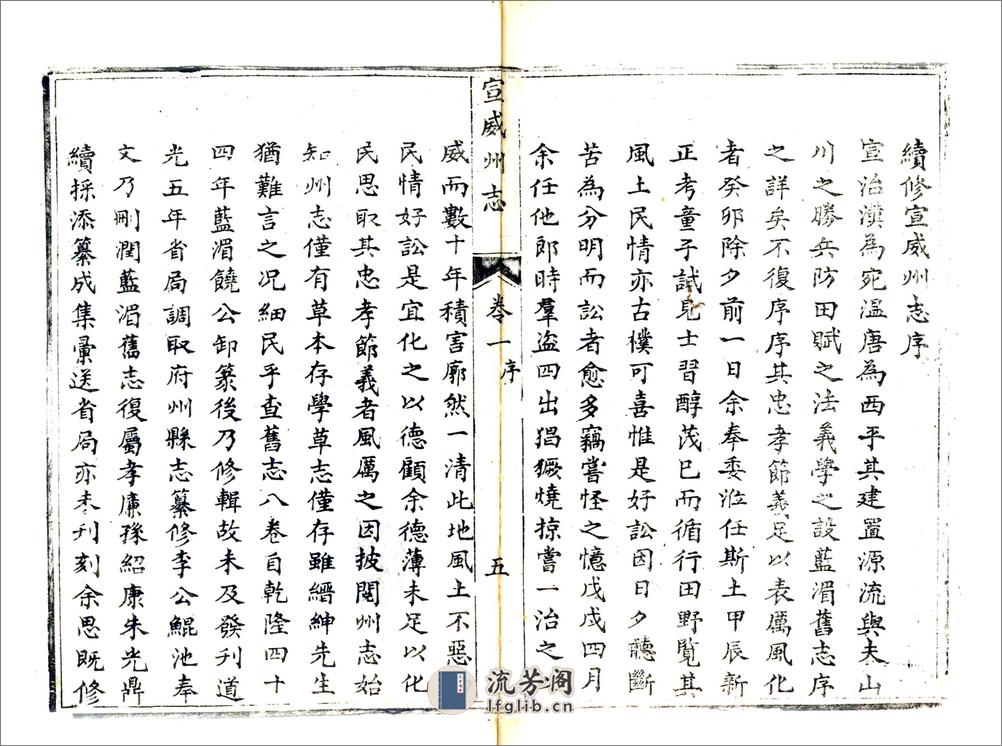 續修宣威州志序
宣治漢為宛溫唐為西平其建置源流與夫山
川之勝兵防田賦之法義學之設藍湄舊志序
之詳矣不復序序其忠孝節義足以表厲風化
者癸卯除夕前一日余奉委涖任斯土甲辰新
正考童子試見士習醇茂已而循行田野覽其
風土民情亦古樸可喜惟是好訟因日夕聽斷
苦為分明而訟者愈多竊嘗怪之憶戊戌四月
余任他郎時羣盗四出猖獗燒掠嘗一治之以
宣威州志
卷一
序
五
威而數十年積害廓然一清此地風土不惡
民情好訟是宜化之以德顧余德薄未足以化
民思取其忠孝節義者風厲之因披閱州志始
知州志僅有草本存學草志僅存雖縉紳先生
猶難言之况細民乎查舊志八卷自乾隆四十
四年藍湄饒公卸篆後乃修輯故未及發刊道
光五年省局調取府州縣志纂修李公鯤池奉
文乃刪潤藍湄舊志復屬孝廉孫紹康朱光鼎
續採添纂成集彙送省局亦未刊刻余思既修
流芳阁
lfglib.cn